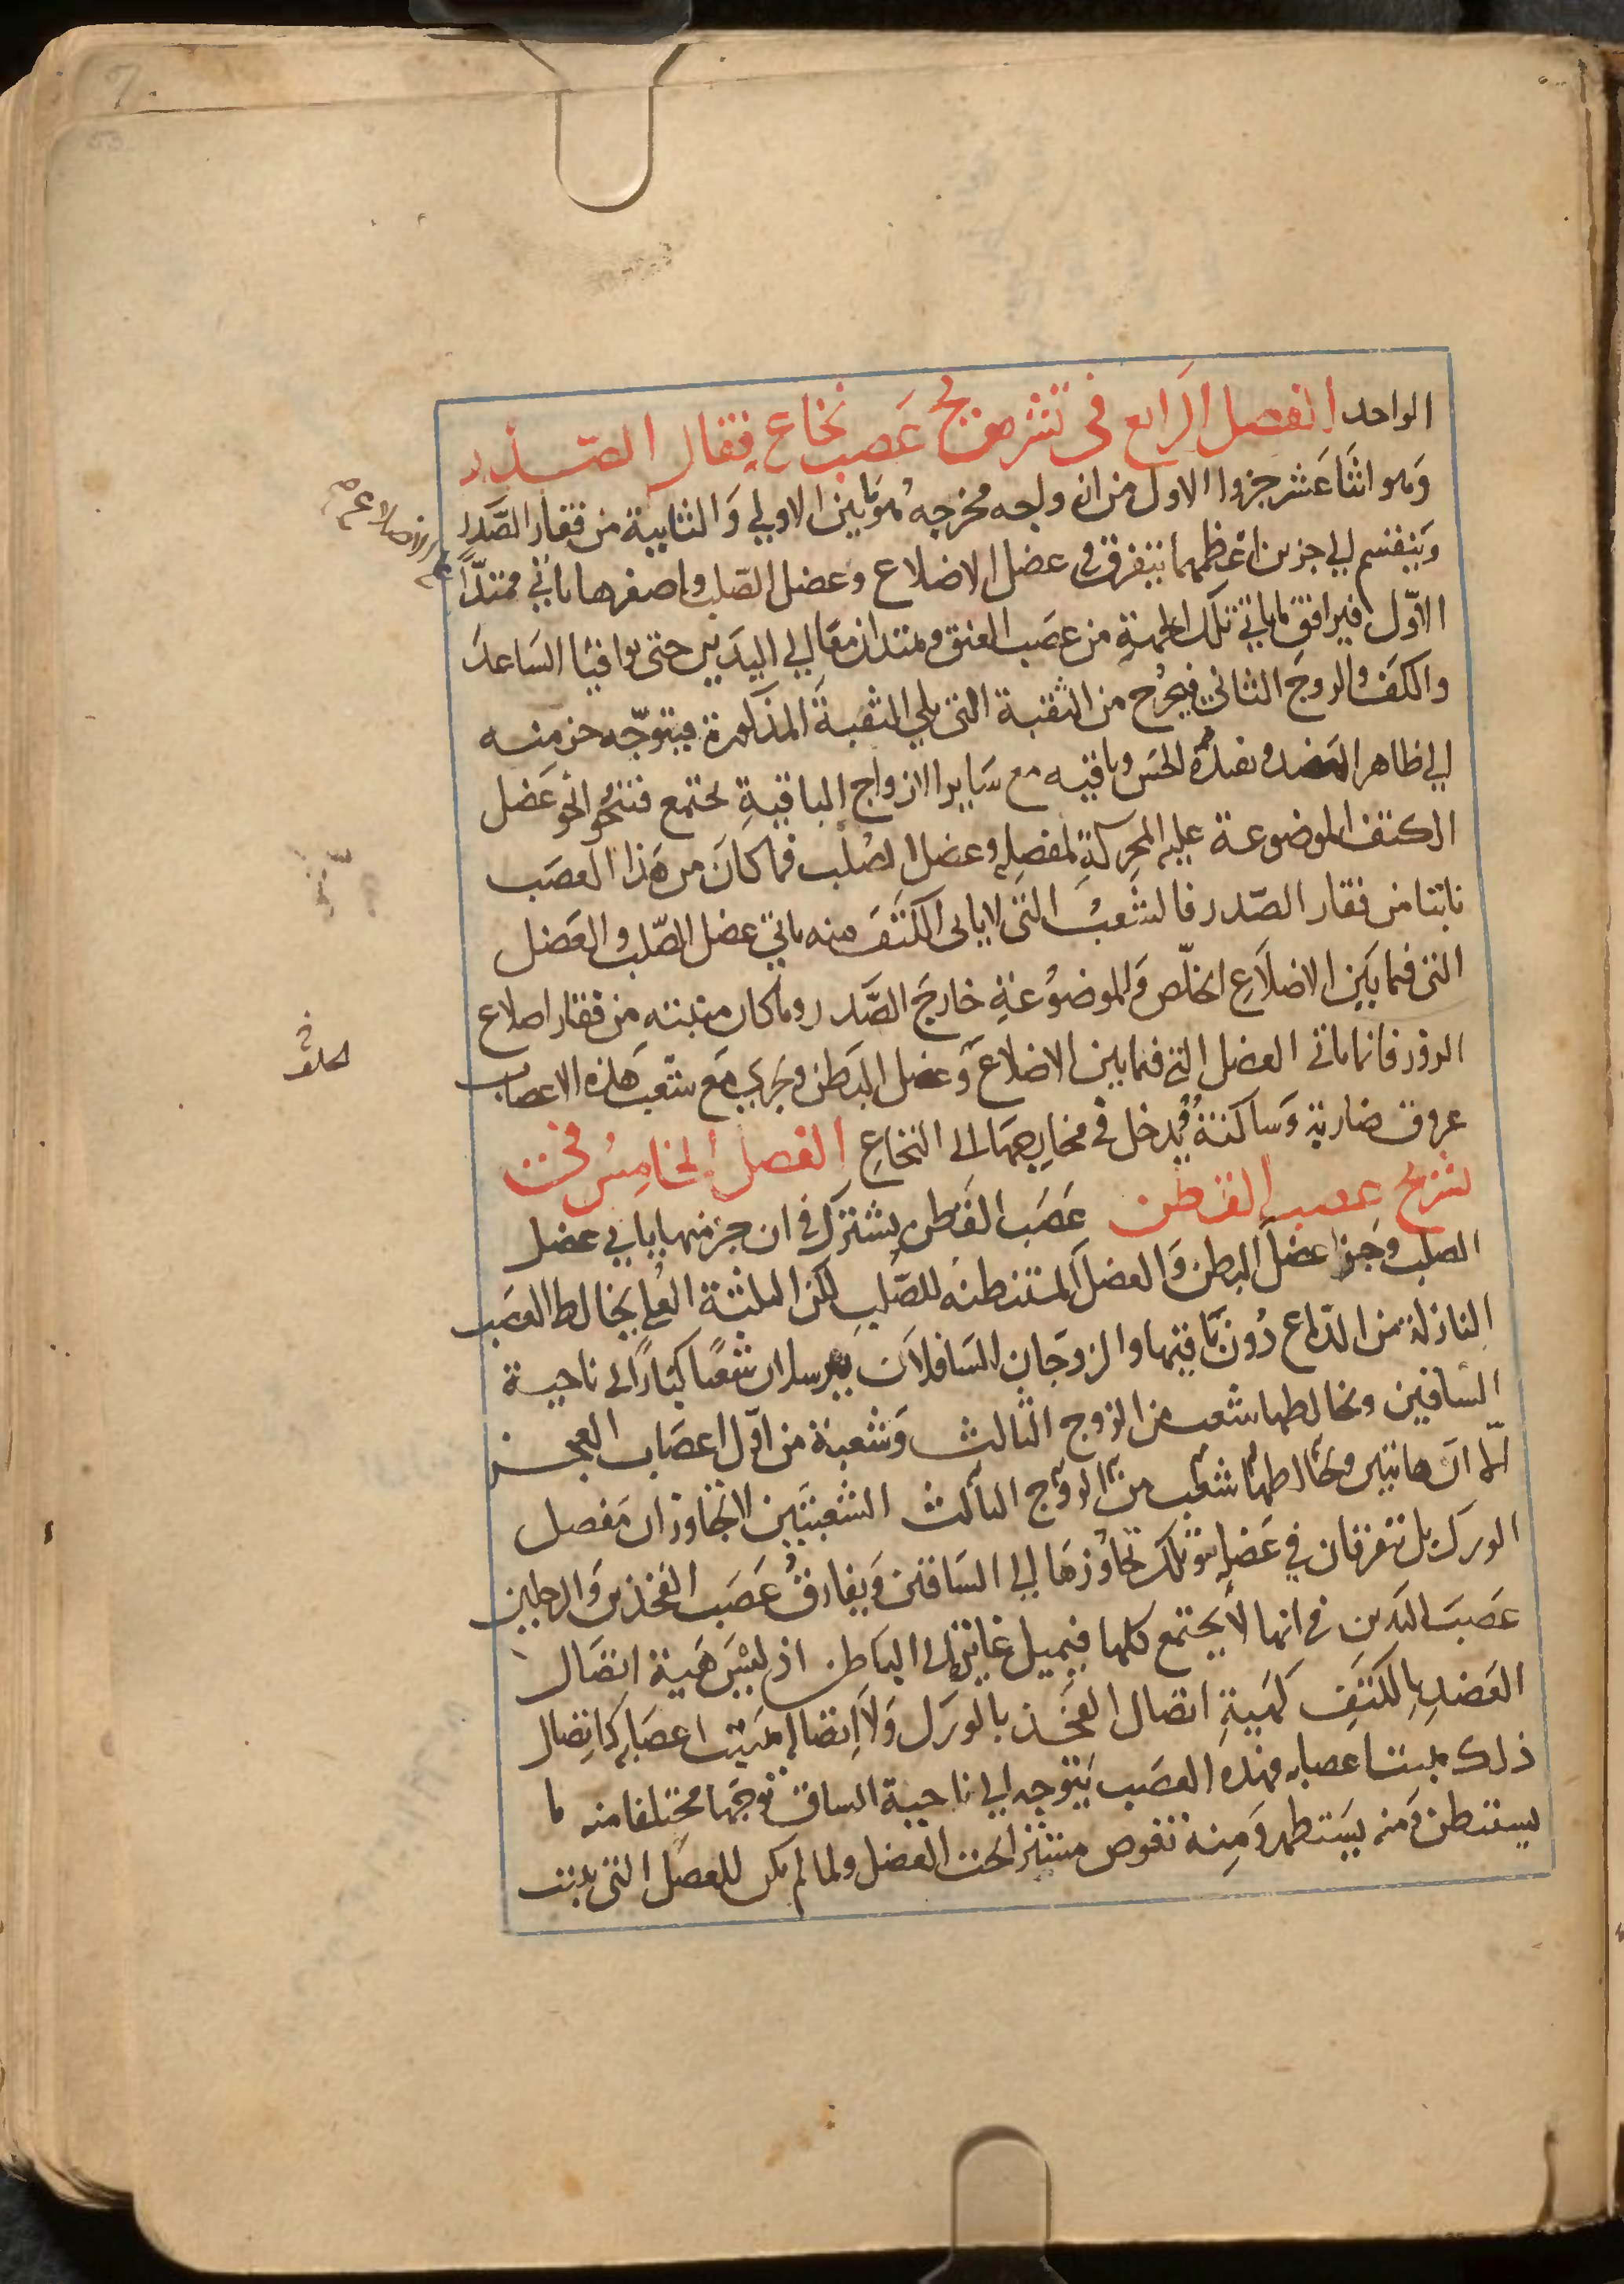 الواحد الفصل الرابع فى تشريح عصب نخاع فقار الصدر
وهو اثنا عشر جزوا الاول من ازواجه مخرجه هو ما بين الاولي والثانية من فقار الصدر
وينقسم الي جزين اعظمهما يتفرق في عضل الاضلاع وعضل الصلب واصغرهما ياتي ممتدًا
علي الاضلاع
الاول فيرافق ما ياتي تلك الجهة من عصب العنق ويمتدان معا الي اليدين حتى يوافيا الساعد
والكف والزوج الثاني فيخرج من الثقبة التى يلي الثقبة المذكورة فيتوجه جز منه
الي ظاهر العضد ويفيده الحس وباقيه مع ساير الازواج الباقية يجتمع فتنحو نحو عضل
الكتف الموضوعة عليه المحركة لمفصله وعضل الصلب فما كان من هذا العصب
نابتا من فقار الصدر فالشعب التى لا ياتي الكتف منه ياتي عضل الصلب والعضل
التى فيما بين الاضلاع الخلص والموضوعة خارج الصدر وما كان منبته من فقار اضلاع
الخلف
الزور فانما ياتى العضل التي فيما بين الاضلاع وعضل البطن ويجري مع شعب هذه الاعصاب
عروق ضاربة وساكنة ويدخل في مخارجها الى النخاع الفصل الخامس في
تشريح عصب القطن عصب القطن يشترك في ان جز منها ياتي عضل
الصلب وجزا عضل البطن والعضل المستبطنه للصلب لكن الثلثة العلي يخالط العصب
النازلة من الدماغ دون باقيها والزوجان السافلان يرسلان شعبا كبارا الى ناحية
الساقين ويخالطهما شعب من الزوج الثالث وشعبة من اول اعصاب العجز
الا ان هاتين ويخالطهما شعب من الزوج الثالث الشعبتين لا تجاوزان مفصل
الورك بل تتفرقان في عضله وتلك تجاوزها الي الساقين ويفارق عصب الفخذين والرجلين
عصب اليدين في انها لا يجتمع كلها فيميل غايرة الى الباطن اذ ليس هية اتصال
العضد بالكتف كهية اتصال الفخذ بالورك ولا اتصاله بمنبت اعصابه كاتصال
ذلك بمنبت اعصابه فهذه العصب يتوجه الي ناحية الساق توجها مختلفا منه ما
يستبطن ومنه يستظهر ومنه تغوص مستترا تحت العضل ولما لم يكن للعضل التى ينبت